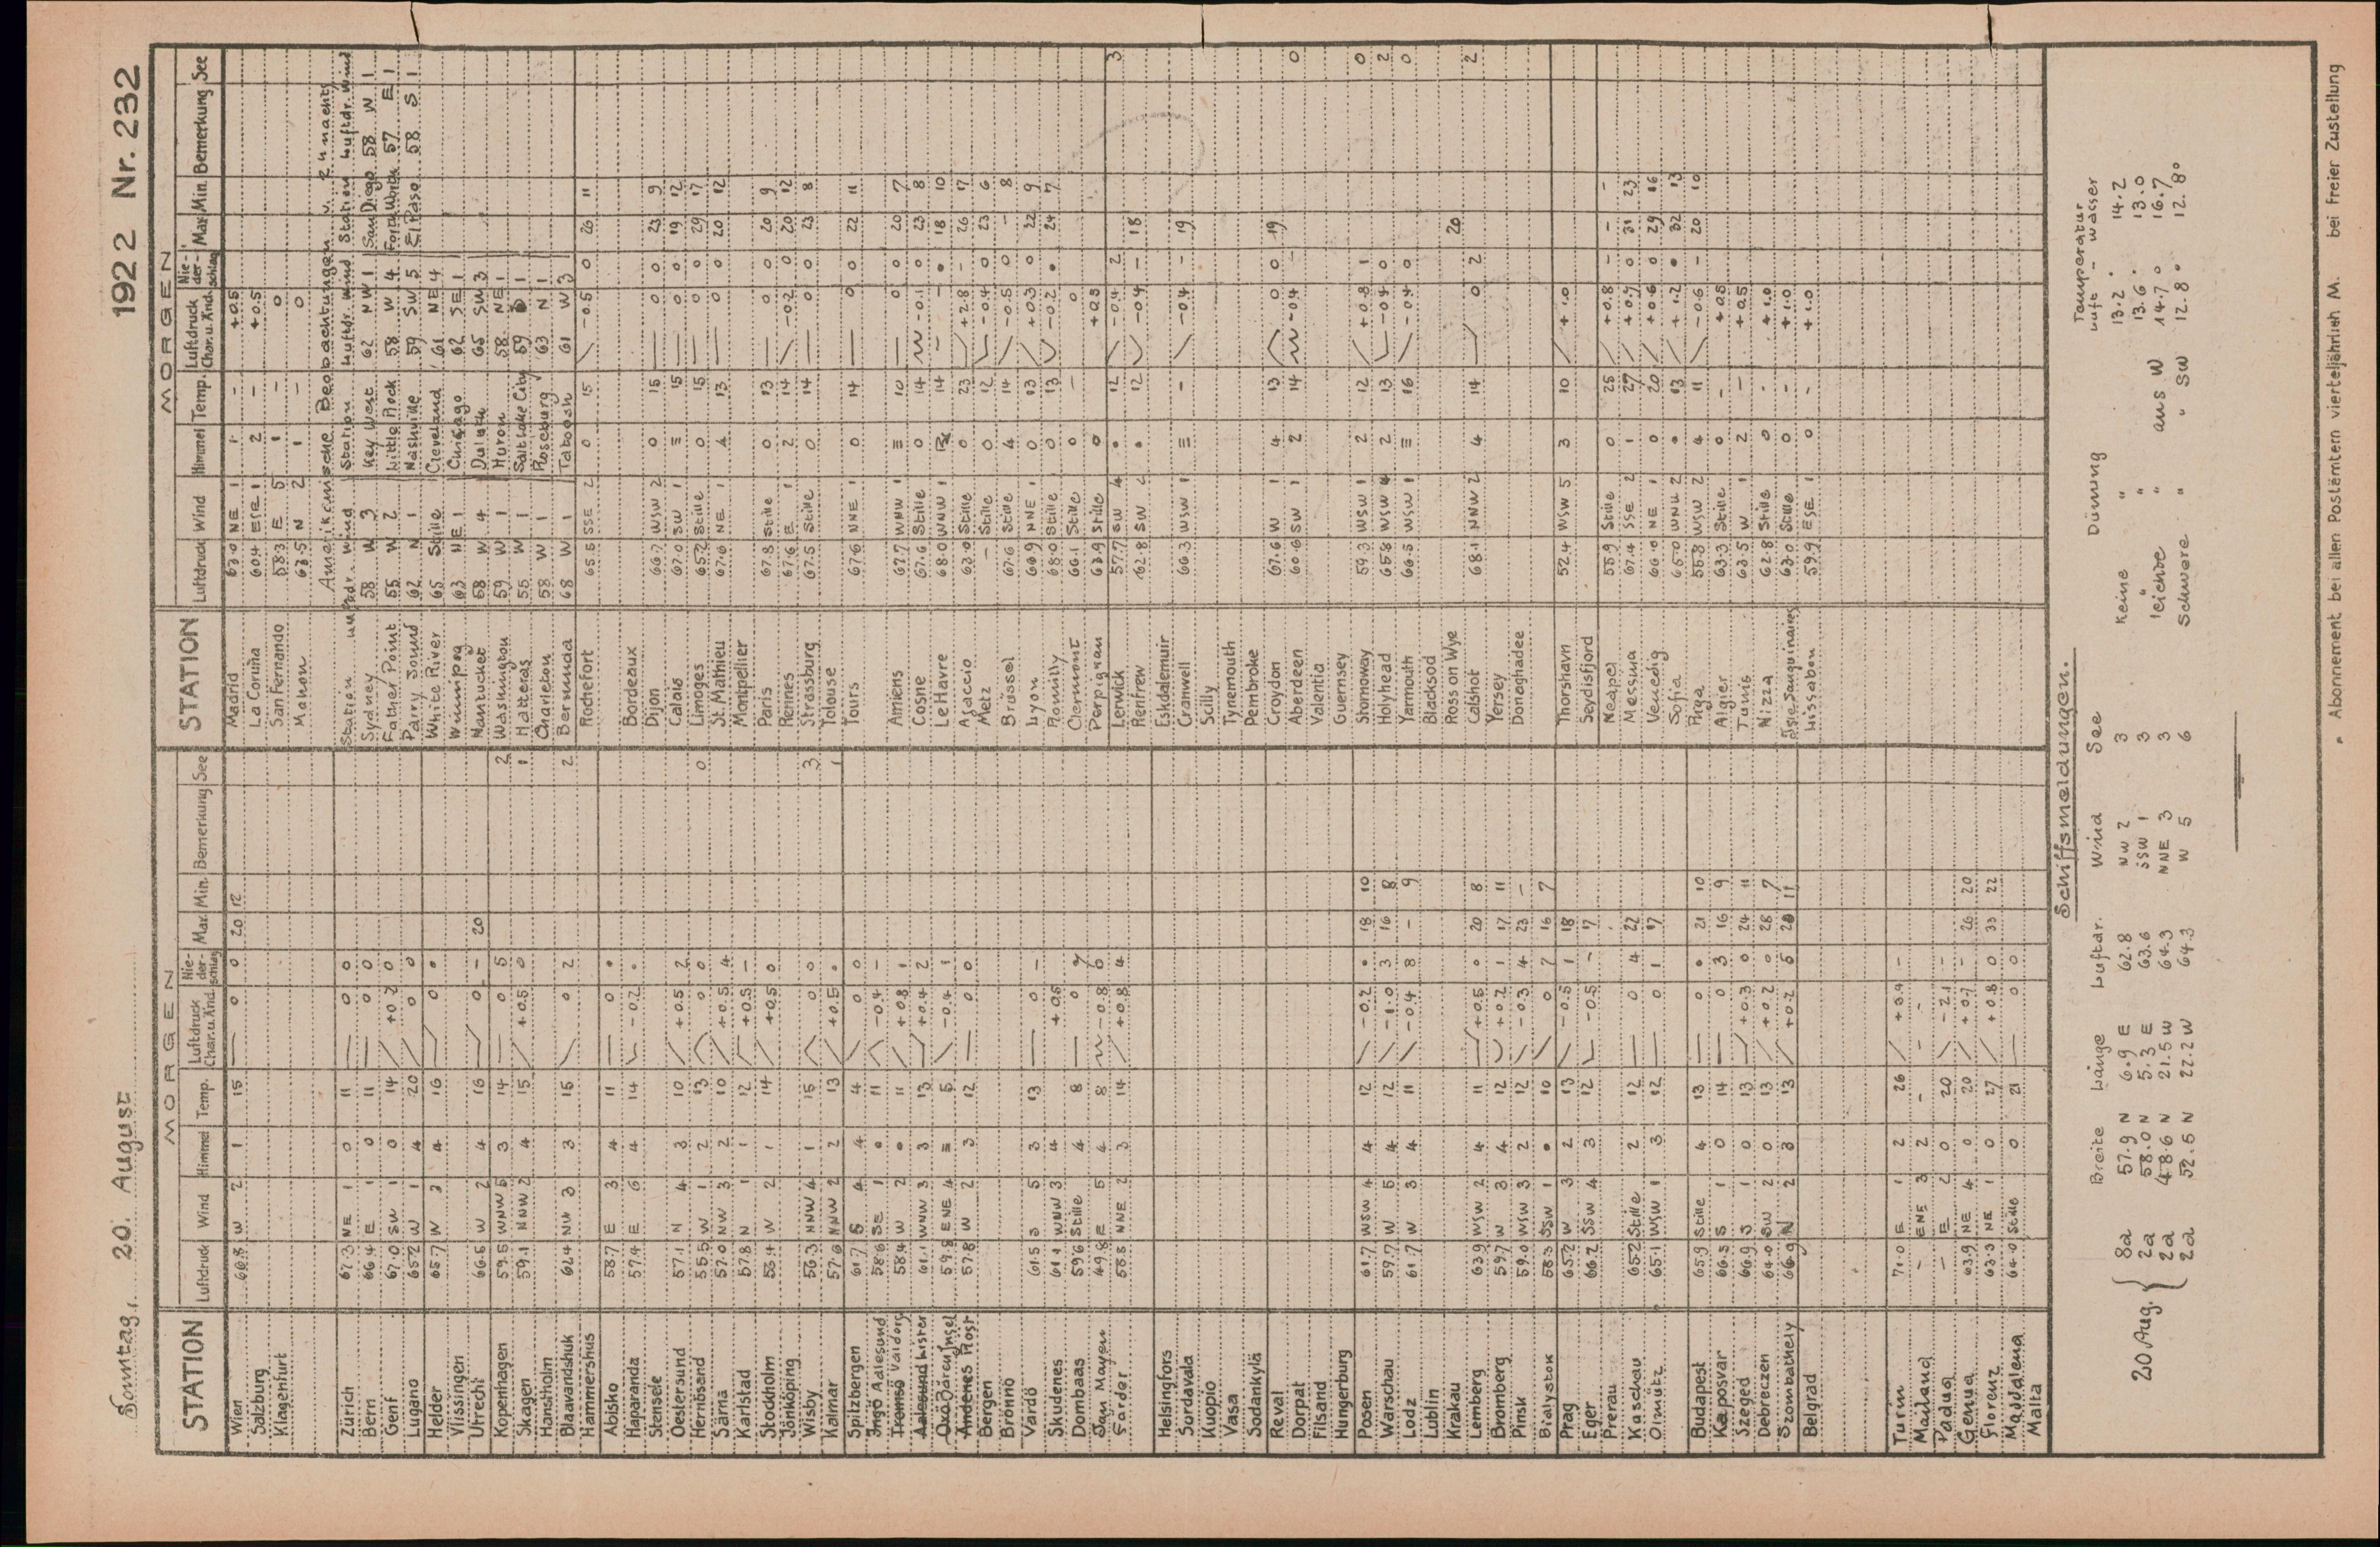 Sonntag, 20. August 1922 Nr. 232
STATION MORGEN
Luftdruck Wind Himmel Temp. Luftdruck Char. u. Änd. Nie-der-schlag Max. Min. Bemerkung See
Wien 60.8 W 2 1 15 0 0 20 12
Salzburg
Klagenfurt
Zürich 67.3 NE 1 0 11 0 0
Bern 66.4 E 1 0 11 0 0
Genf 67.0 SW 1 0 14 +0.2 0
Lugano 65.2 W 1 4 20 0 0
Helder 65.7 W 3 4 16 0 •
Vlissingen
Utrecht 66.6 W 2 4 16 0 - 20
Kopenhagen 59.5 WNW 5 3 14 0 5 2
Skagen 59.1 NNW 2 4 15 +0.5 0 1
Hanstholm
Blaavandshuk 62.4 NW 3 3 15 0 2 2
Hammershus
Abisko 58.7 E 3 4 11 0 •
Haparanda 57.4 E 6 4 14 -0.2 •
Stensele
Oestersund 57.1 N 4 3 10 +0.5 2
Hernösand 55.5 W 1 2 13 0 0 0
Särna 57.0 NW 3 2 10 +0.5 4
Karlstad 57.8 N 1 1 12 +0.5 -
Stockholm 55.4 W 2 1 14 +0.5 0
Jönköping
Wisby 56.3 NNW 4 1 15 0 0 3
Kalmar 57.6 NNW 2 2 13 +0.5 • 1
Spitzbergen 61.7 S 4 4 4 0 0
Ingö Aalesund 58.6 SE 1 • 11 -0.4 -
Tromsö Valdorg 58.4 W 2 • 11 +0.8 1
Aalesund Lister 61.1 WNW 3 3 13 +0.4 2
Oxö Bäreninsel 59.8 ENE 4 ≡ 5 -0.4 1
Andenes Röst 57.8 W 2 3 12 0 0
Bergen
Brönnö
Vardö 61.5 S 5 3 13 0 -
Skudenes 61.1 WNW 3 4 +0.5
Dombaas 59.6 Stille 4 8 0 7
Jan Mayen 49.8 E 5 4 8 -0.8 6
Färder 58.8 NNE 2 3 14 +0.8 4
Helsingfors
Sordavala
Kuopio
Vasa
Sodankylä
Reval
Dorpat
Filsand
Hungerburg
Posen 61.7 WSW 4 4 12 -0.2 • 18 10
Warschau 59.7 W 5 4 12 -1.0 3 16 8
Lodz 61.7 W 3 4 11 -0.4 8 - 9
Lublin
Krakau
Lemberg 63.9 WSW 2 4 11 +0.5 0 20 8
Bromberg 59.7 W 3 4 12 +0.2 1 17 11
Pinsk 59.0 WSW 3 2 12 -0.3 4 23 -
Bialystok 58.3 SSW 1 • 10 0 7 16 7
Prag 65.2 W 3 2 13 -0.5 1 18
Eger 66.2 SSW 4 3 12 -0.5 - 17
Prerau
Kaschau 65.2 Stille 2 12 0 4 22
Olmütz 65.1 WSW 1 3 12 0 1 17
Budapest 65.9 Stille 4 13 0 • 21 10
Kaposvar 66.3 S 1 0 14 0 3 16 9
Szeged 66.9 S 1 0 13 +0.3 0 24 11
Debreczen 64.0 SW 2 0 13 +0.2 0 28 7
Szombathely 66.9 N 2 3 13 +0.2 5 20 11
Belgrad
Turin 71.0 E 1 2 26 +3.4 -
Mailand - ENE 3 2 - - -
Padua - E 2 0 20 -2.1 -
Genua 63.9 NE 4 0 20 +0.7 - 26 20
Florenz 63.3 NE 1 0 27 +0.8 0 33 22
Maddalena 64.0 Stille 0 21 0 0
Malta
STATION MORGEN
Luftdruck Wind Himmel Temp. Luftdruck Char. u. Änd. Nie-der-schlag Max. Min. Bemerkung See
Madrid 63.0 NE 1 1 - +0.5
La Coruña 60.4 ESE 1 2 - +0.5
San Fernando 58.3 E 5 1 - 0
Mahon 63.5 N 2 1 - 0
Amerikanische Beobachtungen v. 2 h nachts
Station Luftdr. Wind Station Luftdr. Wind Station Luftdr. Wind
Sydney 58 W 3 Key West 62 NW 1 San Diego 58 W 1
Father Point 55 W 2 Little Rock 58 W 4 Forth Worth 57 E 1
Parry Sound 62 N 1 Nashville 59 SW 5 El Paso 58 S 1
White River 65 Stille Cleveland 61 NE 4
Winnipeg 63 NE 1 Chicago 62 SE 1
Nantucket 58 W 4 Duluth 65 SW 3
Washington 59 W 1 Huron 58 NE 1
Hatteras 55 W 1 Salt Lake City 59 1
Charleton 58 W 1 Roseburg 63 N 1
Bermuda 68 W 1 Taboosh 61 W 3
Rochefort 65.5 SSE 2 0 15 -0.5 0 26 11
Bordeaux
Dijon 66.7 WSW 2 0 15 0 0 23 9
Calais 67.0 SW 1 ≡ 15 0 0 19 12
Limoges 65.2 Stille 0 15 0 0 29 17
St. Mathieu 67.6 NE 1 4 13 0 0 20 12
Montpellier
Paris 67.8 Stille 0 13 0 0 20 9
Rennes 67.6 E 1 2 14 -0.2 0 20 12
Strassburg 67.5 Stille 0 14 0 0 23 8
Tolouse
Tours 67.6 NNE 1 0 14 0 0 22 11
Amiens 67.7 WNW 1 ≡ 10 0 0 20 7
Cosne 67.6 Stille 0 14 -0.1 0 23 8
Le Havre 68.0 WNW 1 14 - • 18 10
Ajaccio 63.0 Stille 0 23 +2.8 - 26 17
Metz - Stille 0 12 -0.4 0 23 6
Brüssel 67.6 Stille 4 14 -0.5 0 - 8
Lyon 66.9 NNE 1 0 13 +0.3 0 22 9
Romilly 68.0 Stille 0 13 -0.2 • 24 7
Clermont 66.1 Stille 0 - 0
Perpignan 63.9 Stille 0 +0.8
Lerwick 57.7 SW 4 • 12 -0.4 2 3
Renfrew 62.8 SW 2 • 12 -0.4 - 18
Eskdalemuir
Cranwell 66.3 WSW 1 ≡ - -0.4 - 19
Scilly
Tynemouth
Pembroke
Croydon 67.6 W 1 4 13 0 0 19
Aberdeen 60.6 SW 1 2 14 -0.4 - 0
Valentia
Guernsey
Stornoway 59.3 WSW 1 2 12 +0.8 1 0
Holyhead 65.8 WSW 4 2 13 -0.4 0 2
Yarmouth 66.5 WSW 1 ≡ 16 -0.4 0 0
Blacksod
Ross on Wye 20
Calshot 68.1 NNW 2 4 14 0 2 2
Yersey
Donaghadee
Thorshavn 52.4 WSW 5 3 10 +1.0
Seydisfjord
Neapel 55.9 Stille 0 25 +0.8 - - -
Messina 67.4 SSE 2 1 27 +0.7 0 31 23
Venedig 66.0 NE 1 0 20 +0.6 0 29 16
Sofia 65.0 WNW 2 • 13 +1.2 • 32 13
Riga 55.8 WSW 2 4 11 -0.6 - 20 10
Algier 63.3 Stille 0 - +0.5
Tunis 63.5 W 1 2 - +0.5
Nizza 62.8 Stille 0 - +1.0
Isle Sanguinaires 63.0 Stille 0 - +1.0
Lissabon 59.9 ESE 1 0 - +1.0
Schiffsmeldungen.
Breite Länge Luftdr. Wind See Dünung Temperatur Luft - Wasser
20 Aug. 8a 57.9 N 6.9 E 62.8 NW 2 3 Keine " 13.2° 14.2
2a 58.0 N 5.3 E 63.6 SSW 1 3 " " 13.6° 13.0
2a 48.6 N 21.5 W 64.3 NNE 3 3 leichte " aus W 14.7° 16.7
2a 52.5 N 22.2 W 64.3 W 5 6 Schwere " " SW 12.8° 12.8°
Abonnement bei allen Postämtern vierteljährlich M. bei freier Zustellung